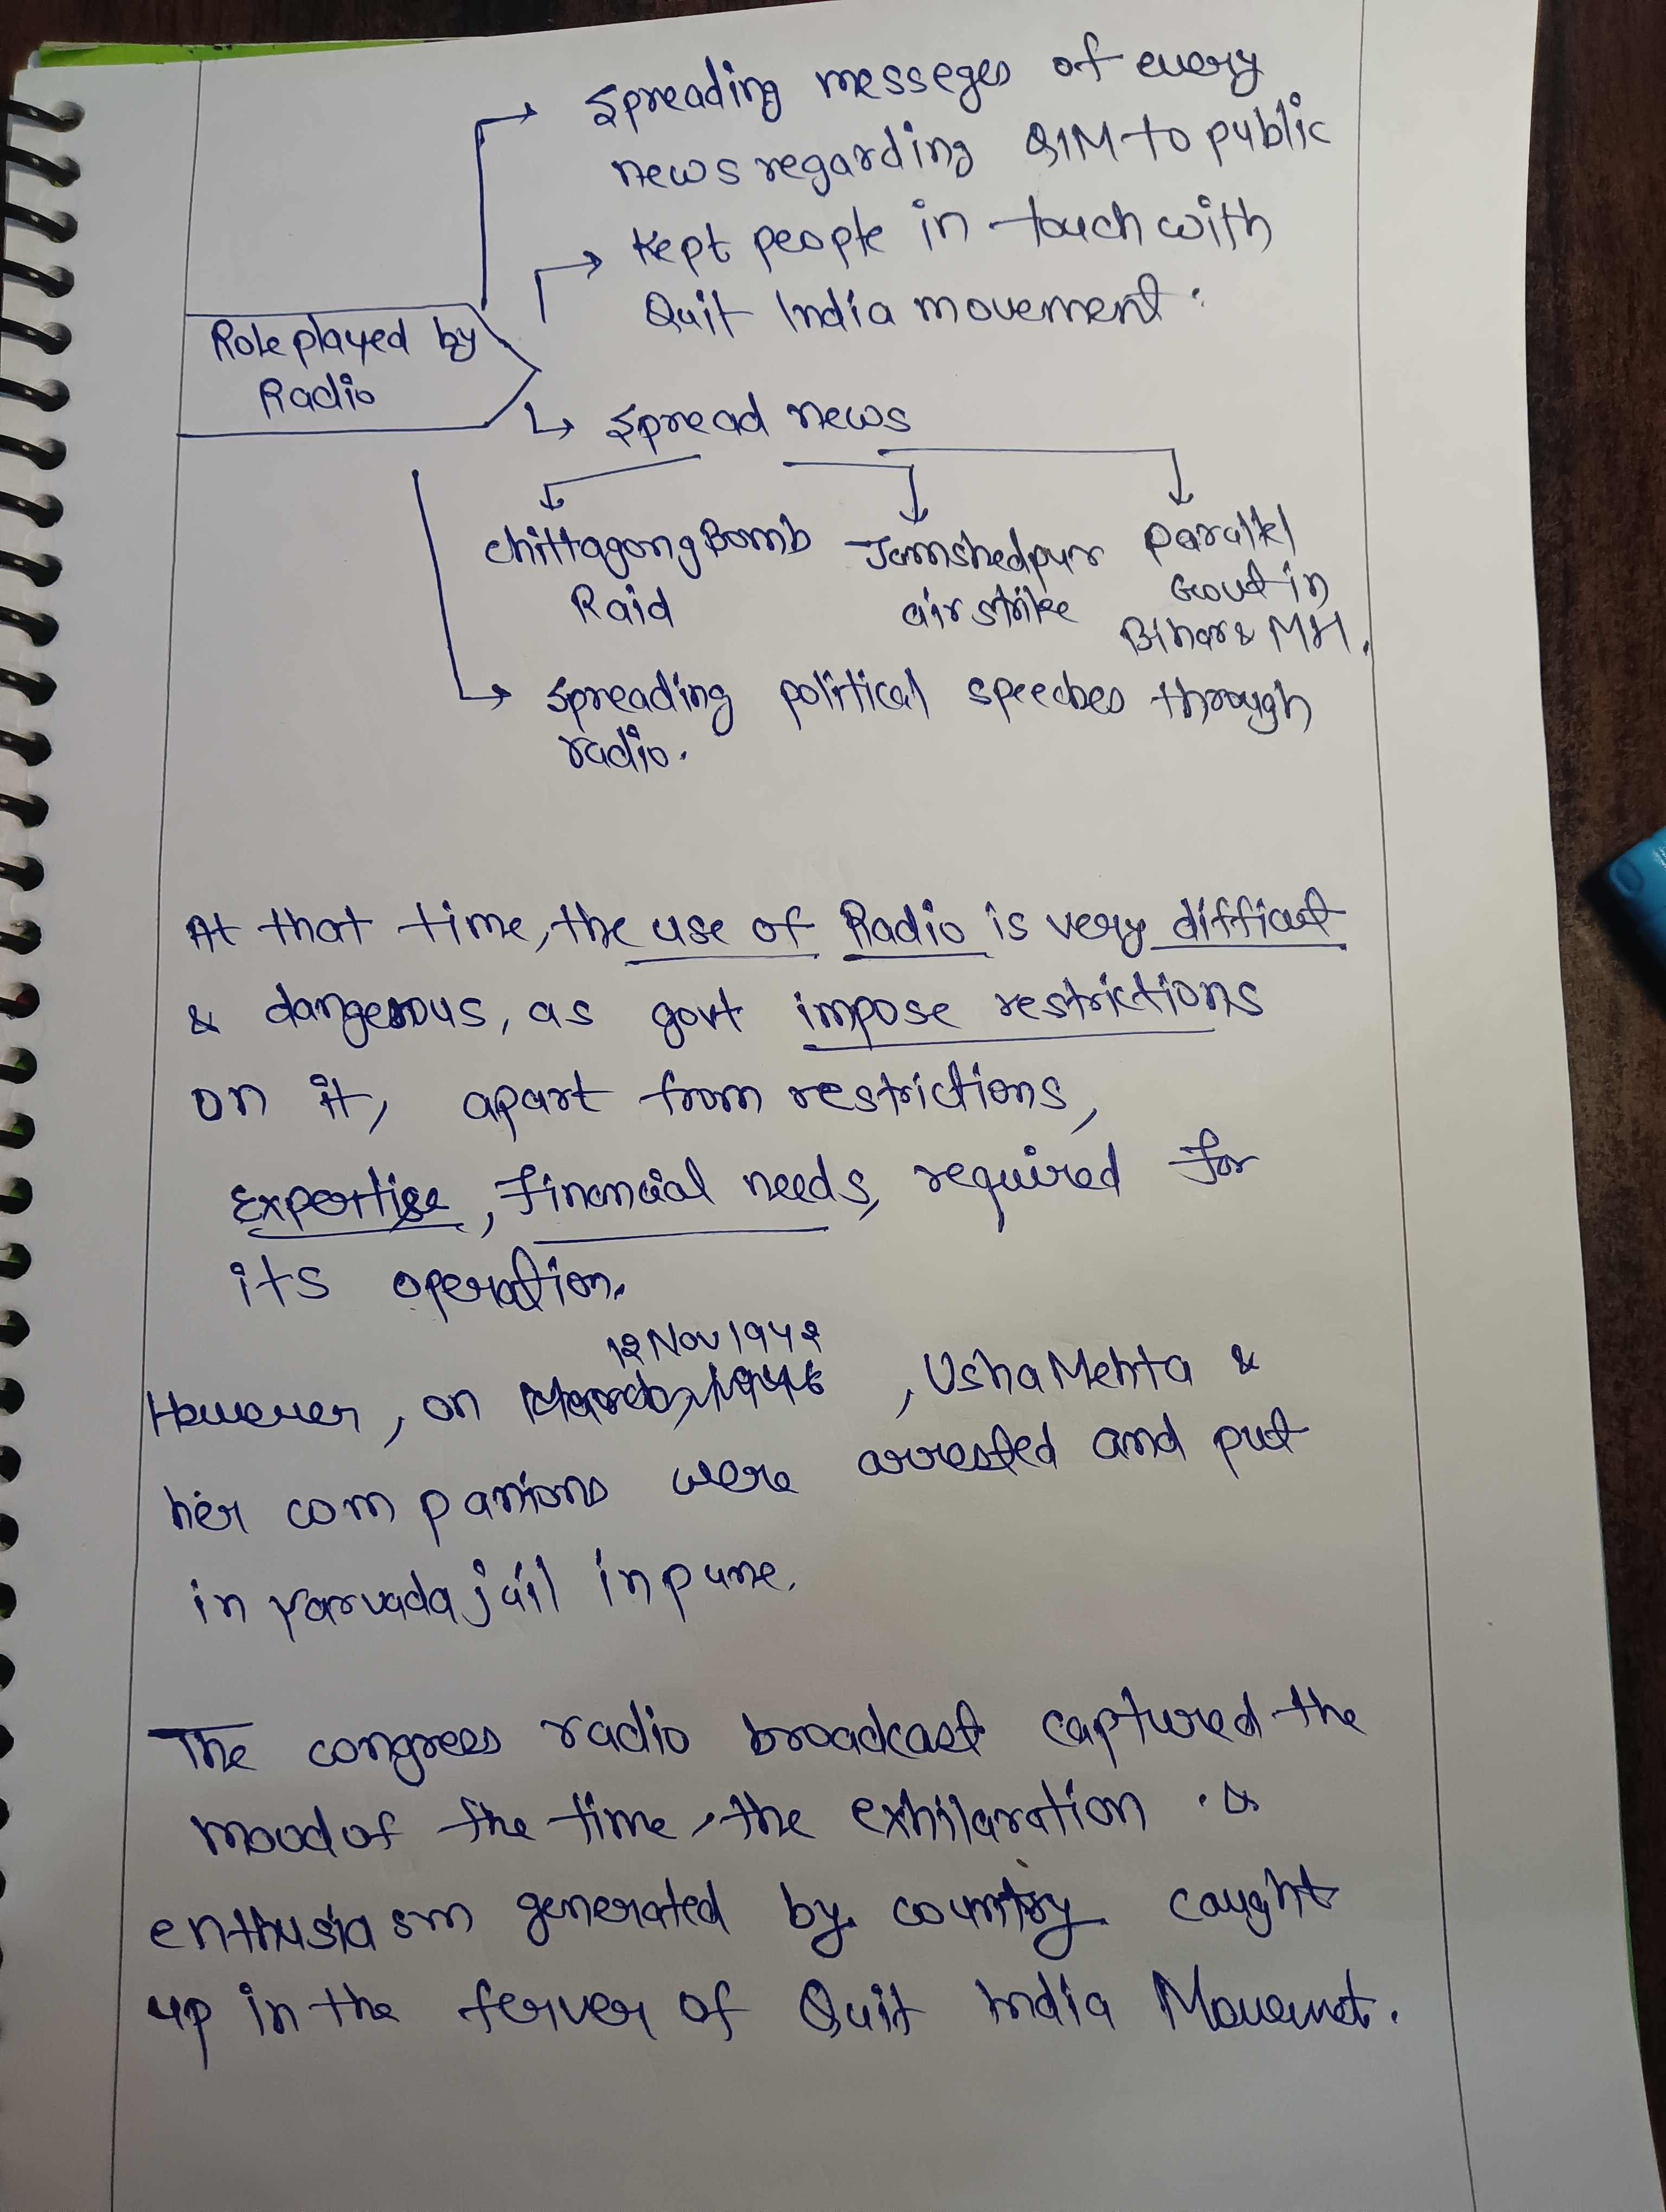 Spreading messeges of every
news regarding QIM to public
Kept people in touch with
Quit India movement.
Role played by
Radio
Spread news
Chittagong Bomb
Raid
Jamshedpur
airstrike
Parallel
Govt in
Bihar & MH.
Spreading political speeches through
radio.
At that time, the use of Radio is very difficult
& dangerous, as govt impose restrictions
on it, apart from restrictions,
Expertise, financial needs, required for
its operation.
12 Nov 1942
However, on , Usha Mehta &
her companions were arrested and put
in Yarvada jail in pune.
The congress radio broadcast captured the
mood of the time, the exhilaration &
enthusiasm generated by country caught
up in the ferver of Quit India Movemnet.